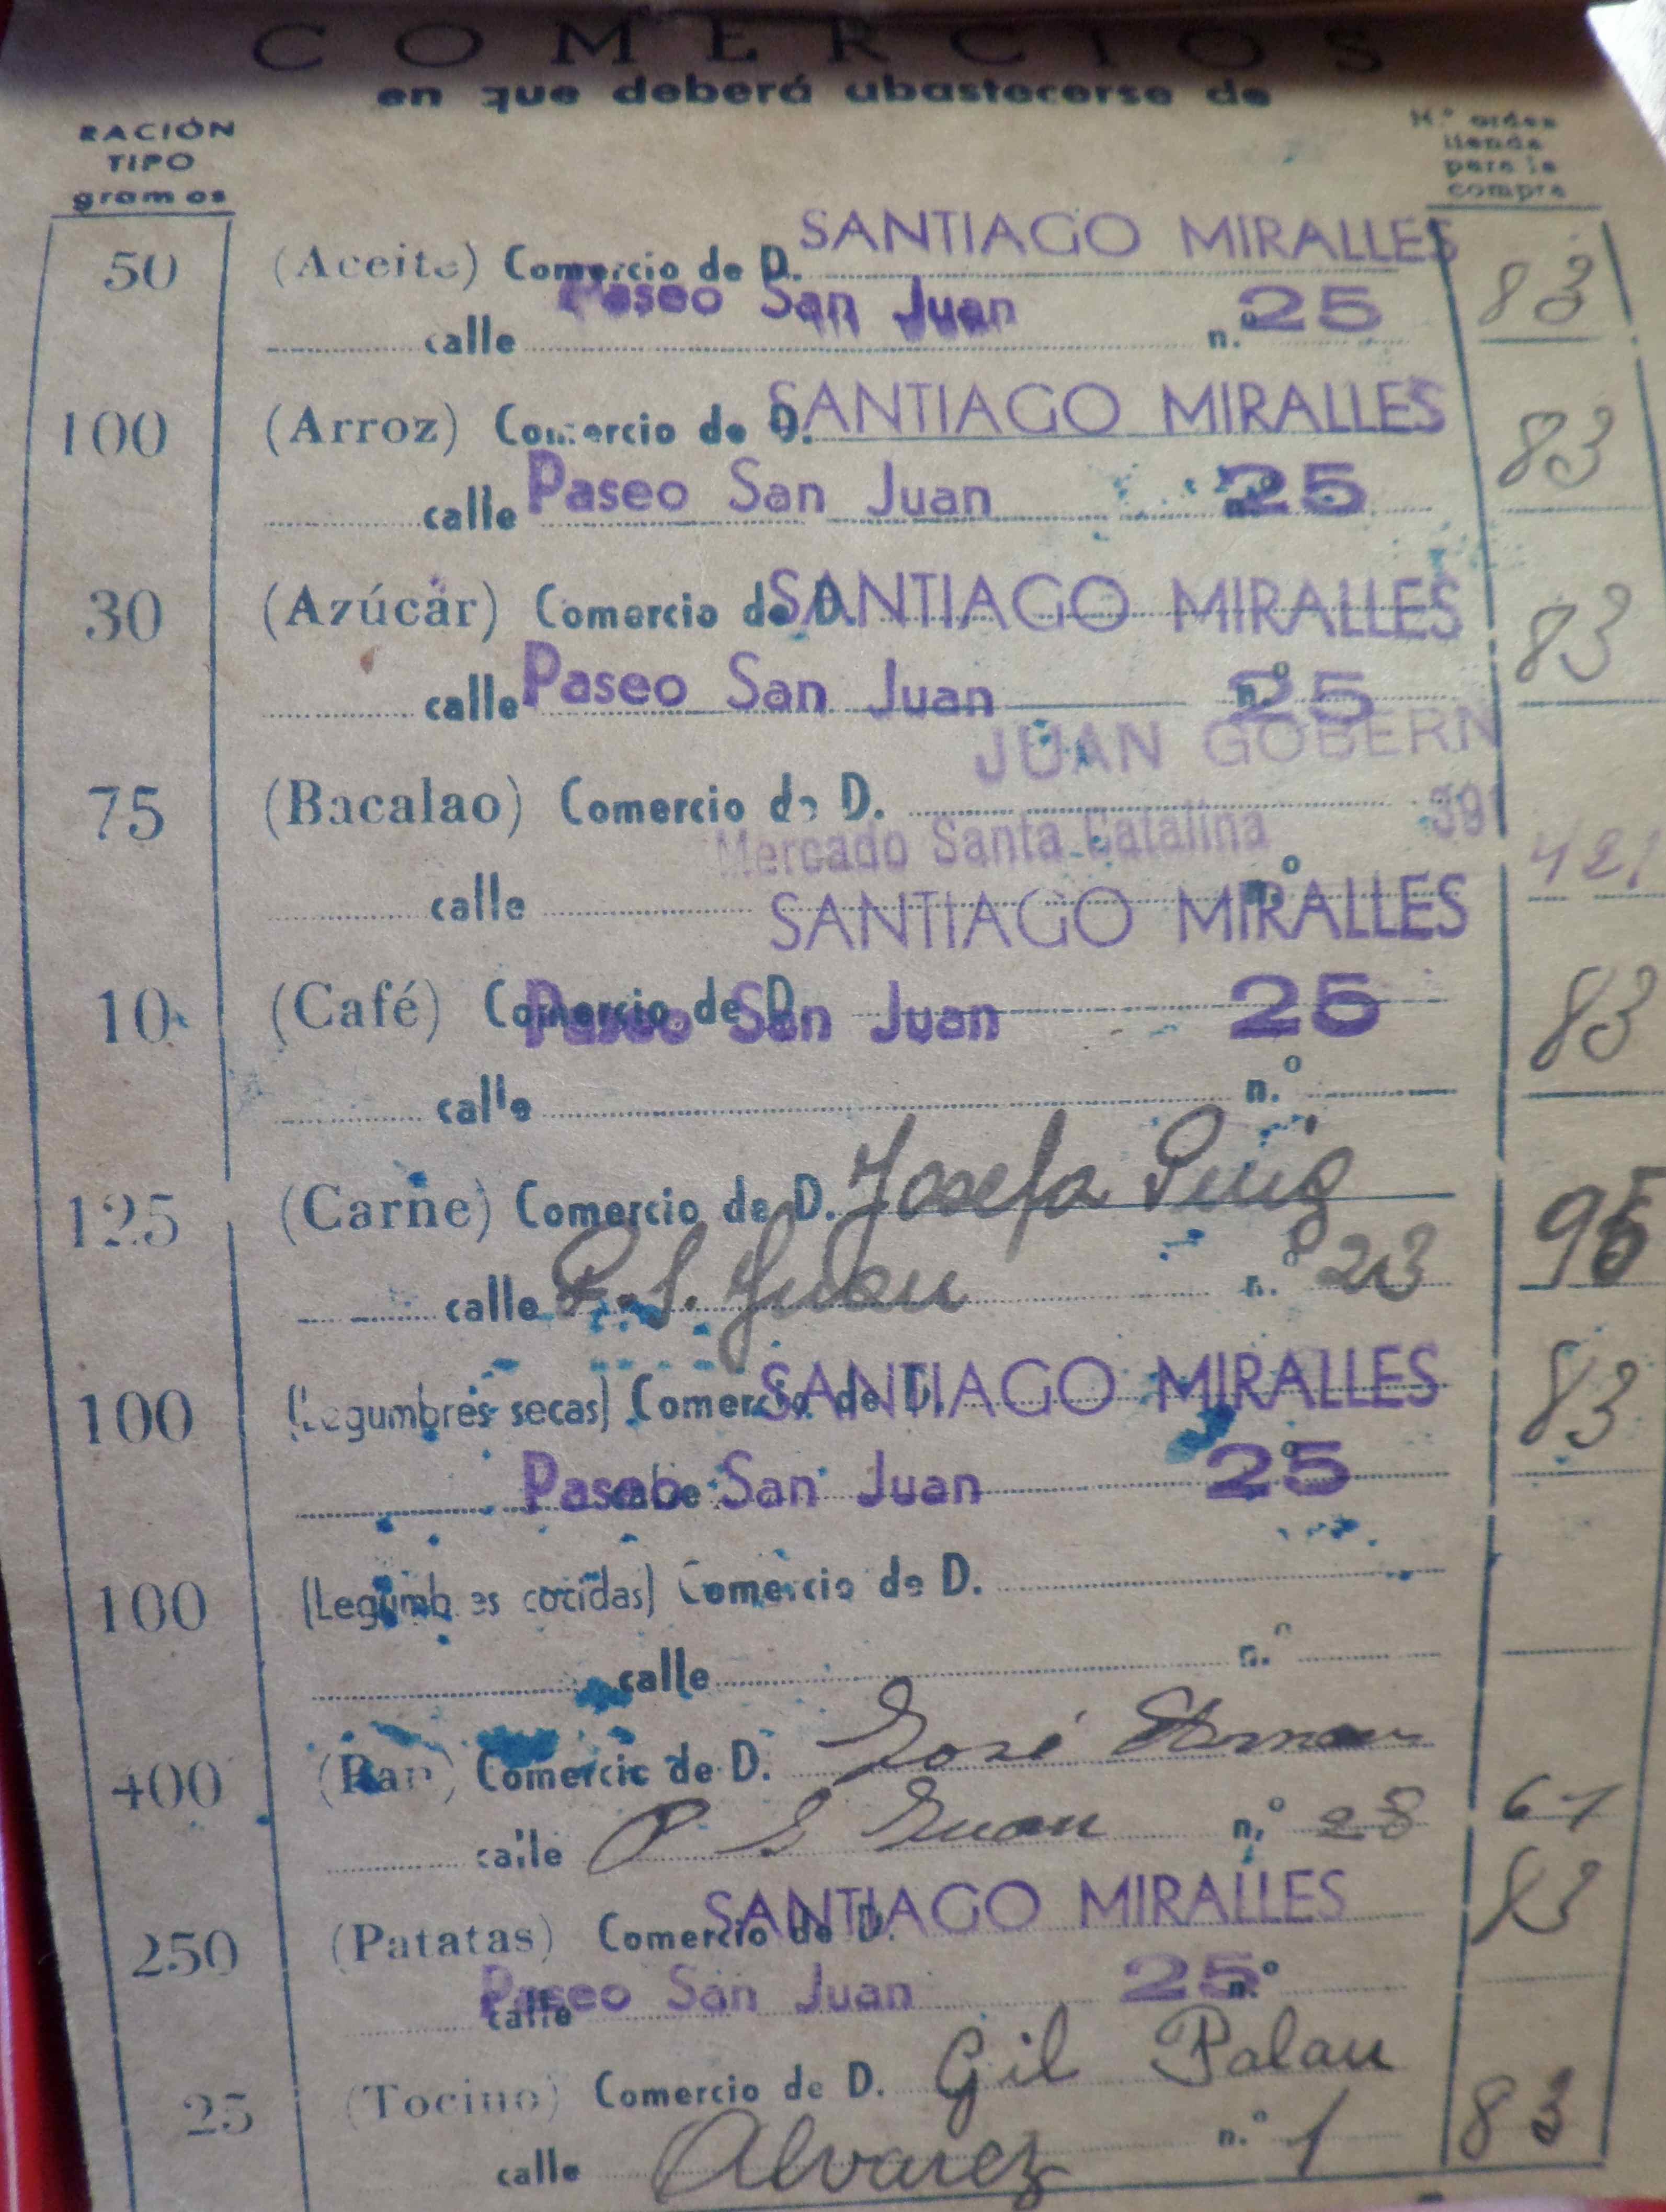 COMERCIOS
en que deberá abastecerse de
RACIÓN
TIPO
gramos
N.º orden
tienda
para la
compra
50 (Aceite) Comercio de D. SANTIAGO MIRALLES 83
calle Paseo San Juan n.º 25
100 (Arroz) Comercio de D. SANTIAGO MIRALLES 83
calle Paseo San Juan n.º 25
30 (Azúcar) Comercio de D. SANTIAGO MIRALLES 83
calle Paseo San Juan n.º 25
JUAN GOBERN
75 (Bacalao) Comercio de D.
Mercado Santa Catalina 391 421
calle n.º
SANTIAGO MIRALLES
10 (Café) Comercio de D. 83
Paseo San Juan 25
calle n.º
125 (Carne) Comercio de D. Josefa Puig 95
calle P. S. Juan n.º 23
100 (Legumbres secas) Comercio de D. SANTIAGO MIRALLES 83
calle Paseo San Juan n.º 25
100 (Legumbres cocidas) Comercio de D.
calle n.º
400 (Pan) Comercio de D. José
calle P S Juan n.º 28 61
250 (Patatas) Comercio de D. SANTIAGO MIRALLES 83
calle Paseo San Juan 25 n.º
25 (Tocino) Comercio de D. Gil Palau 83
calle Alvarez n.º 1